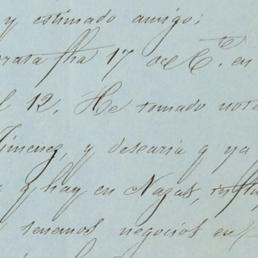 y estimado amigo:
grata fha 17 del Cte. en
l 12. He tomado nota
Jimenez, y desearia q ya
q hay en Nazas,
tenemos negocios en